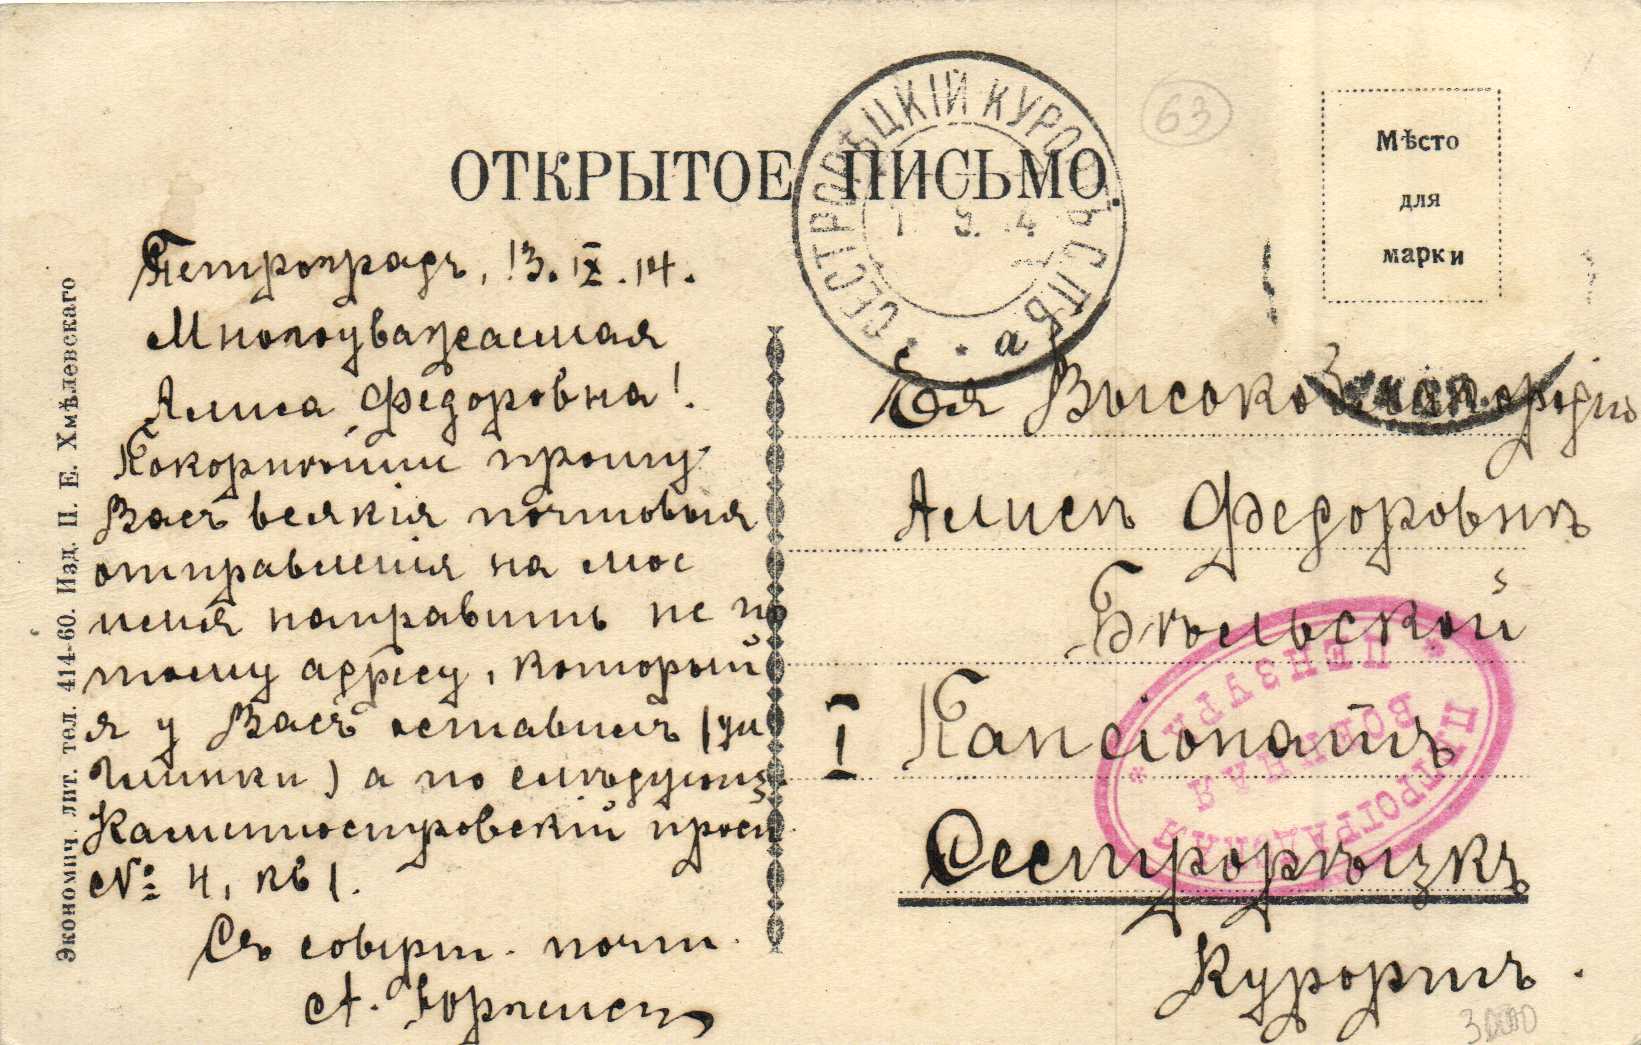 ОТКРЫТОЕ ПИСЬМО.
СЕСТРОРѢЦКІЙ КУРОРТЪ СПБ.
* а *
63
Мѣсто
для
марки
Петроградъ, 13.IX.14.
Многоуважаемая
Алиса Федоровна!
Покорнѣйше прошу
Васъ всякія почтовыя
отправленія на мое
имя направить не по
тому адресу, который
я у Васъ оставилъ (ул
Глинки) а по слѣдующ.
Каменноостровскій просп.
№ 4, кв 1.
Съ соверш. почт.
А.
Ея Высокоблагородію
Алисѣ Федоровнѣ
Бѣльской
I Пансіонатъ
Сестрорѣцкъ
Курортъ.
ПЕТРОГРАДСКАЯ
ВОЕННАЯ
ЦЕНЗУРА
Экономич. лит. тел. 414-60. Изд. П. Е. Хмѣлевскаго